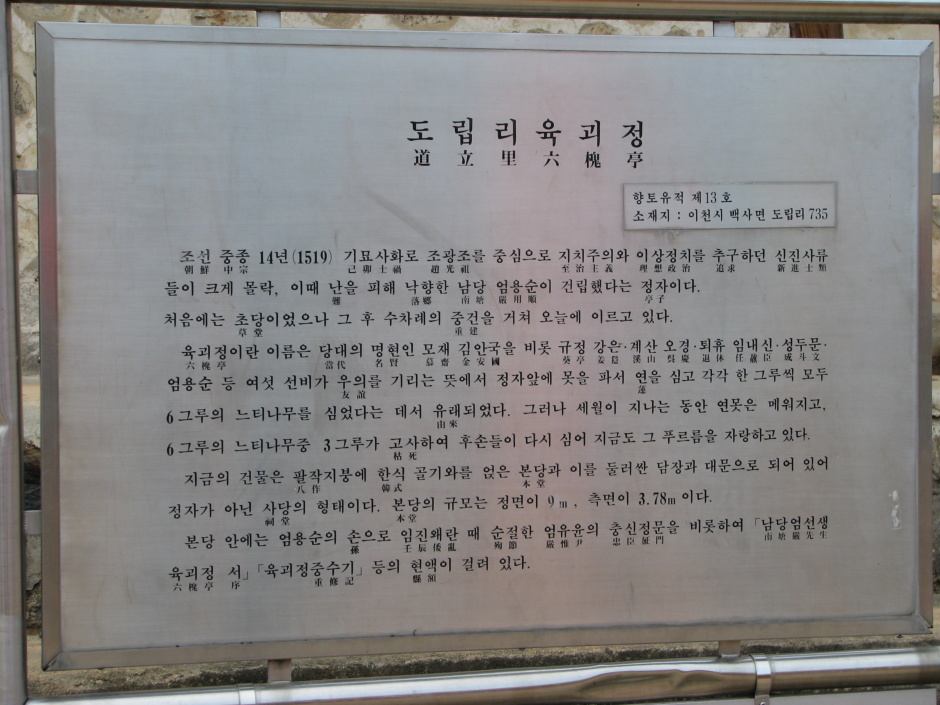 도립리육괴정
道立里六槐亭
향토유적 제13호
소재지 : 이천시 백사면 도립리 735
조선 중종 14년(1519) 기묘사화로 조광조를 중심으로 지치주의와 이상정치를 추구하던 신진사류
朝鮮 中宗 己卯士禍 趙光祖 至治主義 理想政治 追求 新進士類
들이 크게 몰락, 이때 난을 피해 낙향한 남당 엄용순이 건립했다는 정자이다.
難 落鄕 南塘 嚴用順 亭子
처음에는 초당이었으나 그 후 수차례의 중건을 거쳐 오늘에 이르고 있다.
草堂 重建
육괴정이란 이름은 당대의 명현인 모재 김안국을 비롯 규정 강은·계산 오경·퇴휴 임내신·성두문·
六槐亭 當代 名賢 慕齋 金安國 葵亭 姜㶏 溪山 吳慶 退休 任鼐臣 成斗文
엄용순 등 여섯 선비가 우의를 기리는 뜻에서 정자앞에 못을 파서 연을 심고 각각 한 그루씩 모두
友誼 蓮
6그루의 느티나무를 심었다는 데서 유래되었다. 그러나 세월이 지나는 동안 연못은 메워지고,
由來
6그루의 느티나무중 3그루가 고사하여 후손들이 다시 심어 지금도 그 푸르름을 자랑하고 있다.
枯死
지금의 건물은 팔작지붕에 한식 골기와를 얹은 본당과 이를 둘러싼 담장과 대문으로 되어 있어
八作 韓式 本堂
정자가 아닌 사당의 형태이다. 본당의 규모는 정면이 9m, 측면이 3.78m이다.
祠堂 本堂
본당 안에는 엄용순의 손으로 임진왜란 때 순절한 엄유윤의 충신정문을 비롯하여 「남당엄선생
孫 壬辰倭亂 殉節 嚴惟尹 忠臣旌門 南塘嚴先生
육괴정 서」「육괴정중수기」등의 현액이 걸려 있다.
六槐亭 序 重修記 懸額